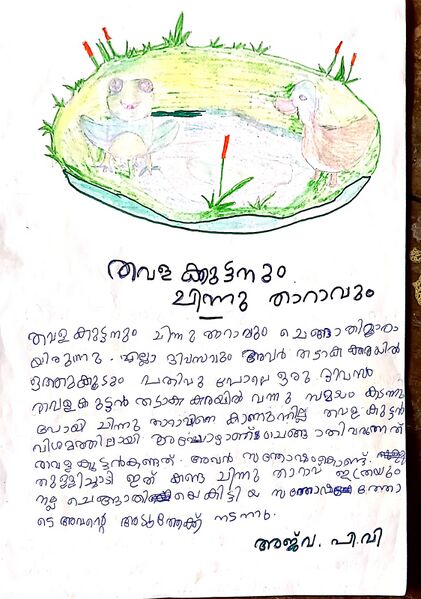 തവള ക്കുട്ടനും
ചിന്നു താറാവും
തവള കുട്ടനും ചിന്നു താറാവും ചെങ്ങാതിമാരാ
യിരുന്നു. എല്ലാ ദിവസവും അവർ തടാക കരയിൽ
ഒത്തുകൂടും പതിവു പോലെ ഒരു ദിവസം
തവളകുട്ടൻ തടാക കരയിൽ വന്നു സമയം കടന്നു
പോയി ചിന്നു താറാവിനെ കാണുന്നില്ല തവള കുട്ടൻ
വിശമത്തിലായി അപ്പോഴാണ് ചെങ്ങാതിവരുന്നത്
തവള കൂട്ടൻകണ്ടത്. അവൻ സന്തോഷംകൊണ്ട്
തുള്ളിച്ചാടി ഇത് കണ്ട ചിന്നു താറാവ് ഇത്രയും
നല്ല ചെങ്ങാതിയെകിട്ടിയ സന്തോഷത്തോ
ടെ അവന്റെ അടുത്തേക്ക് നടന്നു.
അജ്വ. പി.വി